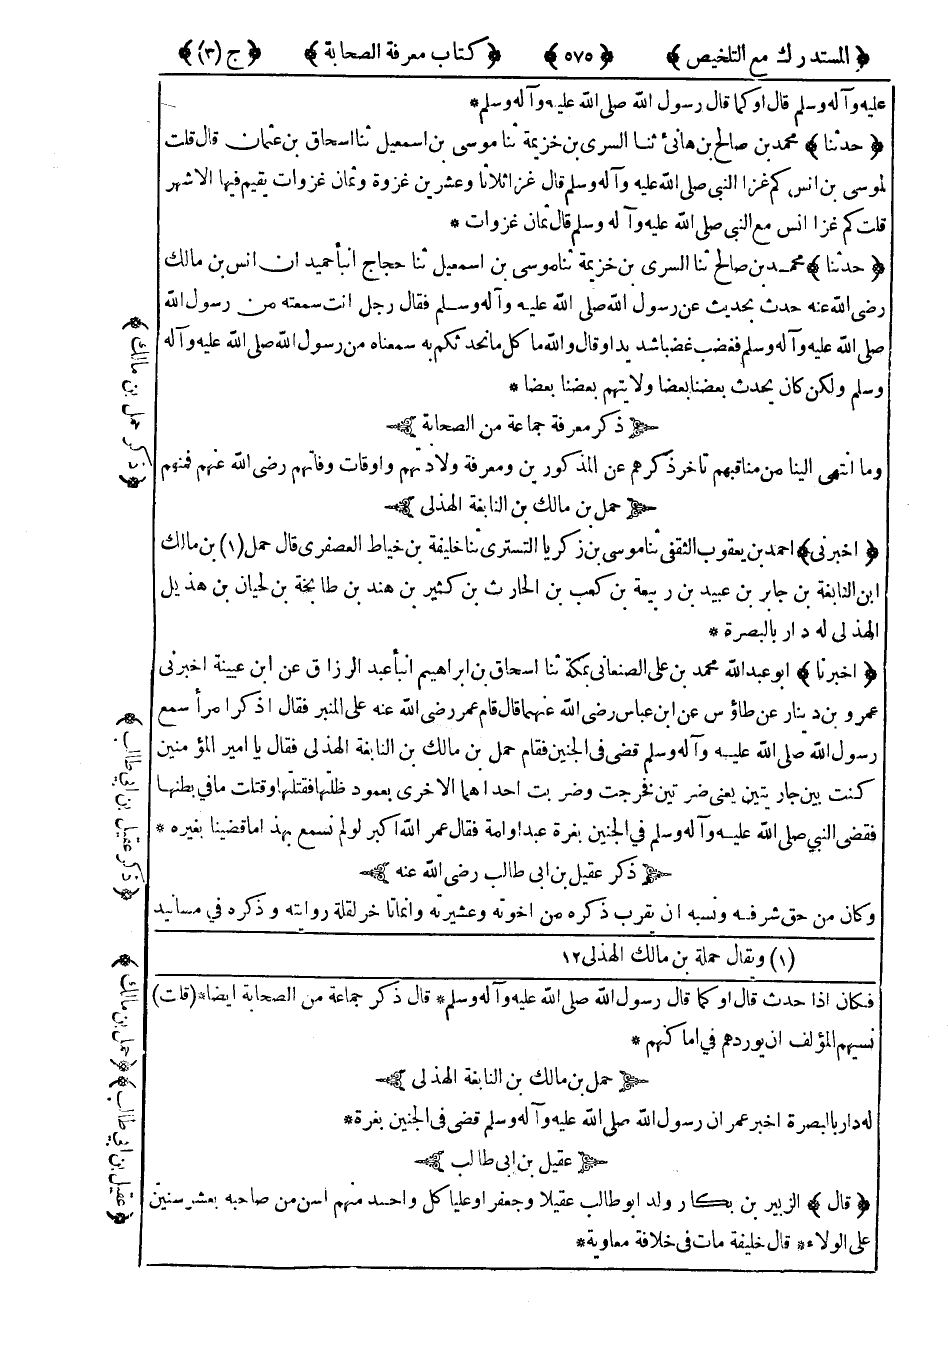 ﴿ المستدرك مع التلخيص ﴾ ﴿ ٥٧٥ ﴾ ﴿ كتاب معرفة الصحابة ﴾ ﴿ ج (٣) ﴾
عليه وآله وسلم قال او كما قال رسول الله صلى الله عليه وآله وسلم*
﴿ حدثنا ﴾ محمد بن صالح بن هانئ ثنا السرى بن خزيمة ثنا موسى بن اسمعيل ثنا اسحاق بن عثمان قال قلت
لموسى بن انس كم غزا النبي صلى الله عليه وآله وسلم قال غزا ثلاثا وعشرين غزوة وثمان غزوات يقيم فيها الاشهر
قلت كم غزا انس مع النبي صلى الله عليه وآله وسلم قال ثمان غزوات *
﴿ حدثنا ﴾ محمد بن صالح ثنا السرى بن خزيمة ثنا موسى بن اسمعيل ثنا حجاج انبأ حميد ان انس بن مالك
رضى الله عنه حدث بحديث عن رسول الله صلى الله عليه وآله وسلم فقال رجل انت سمعته من رسول الله
صلى الله عليه وآله وسلم فغضب غضبا شديدا وقال والله ما كل ما نحدثكم به سمعناه من رسول الله صلى الله عليه وآله
وسلم ولكن كان يحدث بعضنا بعضا ولا يتهم بعضنا بعضا *
ذكر معرفة جماعة من الصحابة
وما انتهى الينا من مناقبهم تأخر ذكرهم عن المذكورين ومعرفة ولادتهم واوقات وفاتهم رضى الله عنهم فمنهم
حمل بن مالك بن النابغة الهذلى
﴿ اخبرنى ﴾ احمد بن يعقوب الثقفى ثنا موسى بن زكريا التسترى ثنا خليفة بن خياط العصفرى قال حمل (١) بن مالك
ابن النابغة بن جابر بن عبيد بن ربيعة بن كعب بن الحارث بن كثير بن هند بن طابخة بن لحيان بن هذيل
الهذلى له دار بالبصرة *
﴿ اخبرنا ﴾ ابو عبد الله محمد بن على الصنعانى بمكة ثنا اسحاق بن ابراهيم انبأ عبد الرزاق عن ابن عيينة اخبرنى
عمرو بن دينار عن طاؤس عن ابن عباس رضى الله عنهما قال قام عمر رضى الله عنه على المنبر فقال اذكر امرأ سمع
رسول الله صلى الله عليه وآله وسلم قضى فى الجنين فقام حمل بن مالك بن النابغة الهذلى فقال يا امير المؤمنين
كنت بين جاريتين يعنى ضرتين فخرجت وضربت احداهما الاخرى بعمود ظلتها فقتلتها وقتلت ما في بطنها
فقضى النبي صلى الله عليه وآله وسلم في الجنين بغرة عبد او امة فقال عمر الله اكبر لو لم نسمع بهذا ما قضينا بغيره *
ذكر عقيل بن ابى طالب رضى الله عنه
وكان من حق شرفه ونسبه ان يقرب ذكره من اخوته وعشيرته وانما تأخر لقلة روايته وذكره في مسانيد
(١) ويقال حملة بن مالك الهذلى ١٢
فكان اذا حدث قال او كما قال رسول الله صلى الله عليه وآله وسلم* قال ذكر جماعة من الصحابة ايضا* (قلت)
نسيهم المؤلف ان يوردهم في اماكنهم *
حمل بن مالك بن النابغة الهذلى
له دار بالبصرة اخبر عمر ان رسول الله صلى الله عليه وآله وسلم قضى فى الجنين بغرة*
عقيل بن ابى طالب
﴿ قال ﴾ الزبير بن بكار ولد ابو طالب عقيلا وجعفرا وعليا كل واحد منهم اسن من صاحبه بعشر سنين
على الولاء* قال خليفة مات فى خلافة معاوية*
﴿ ذكر حمل بن مالك ﴾
﴿ ذكر عقيل بن ابى طالب ﴾
﴿ حمل بن مالك ﴾
﴿ عقيل بن ابى طالب ﴾